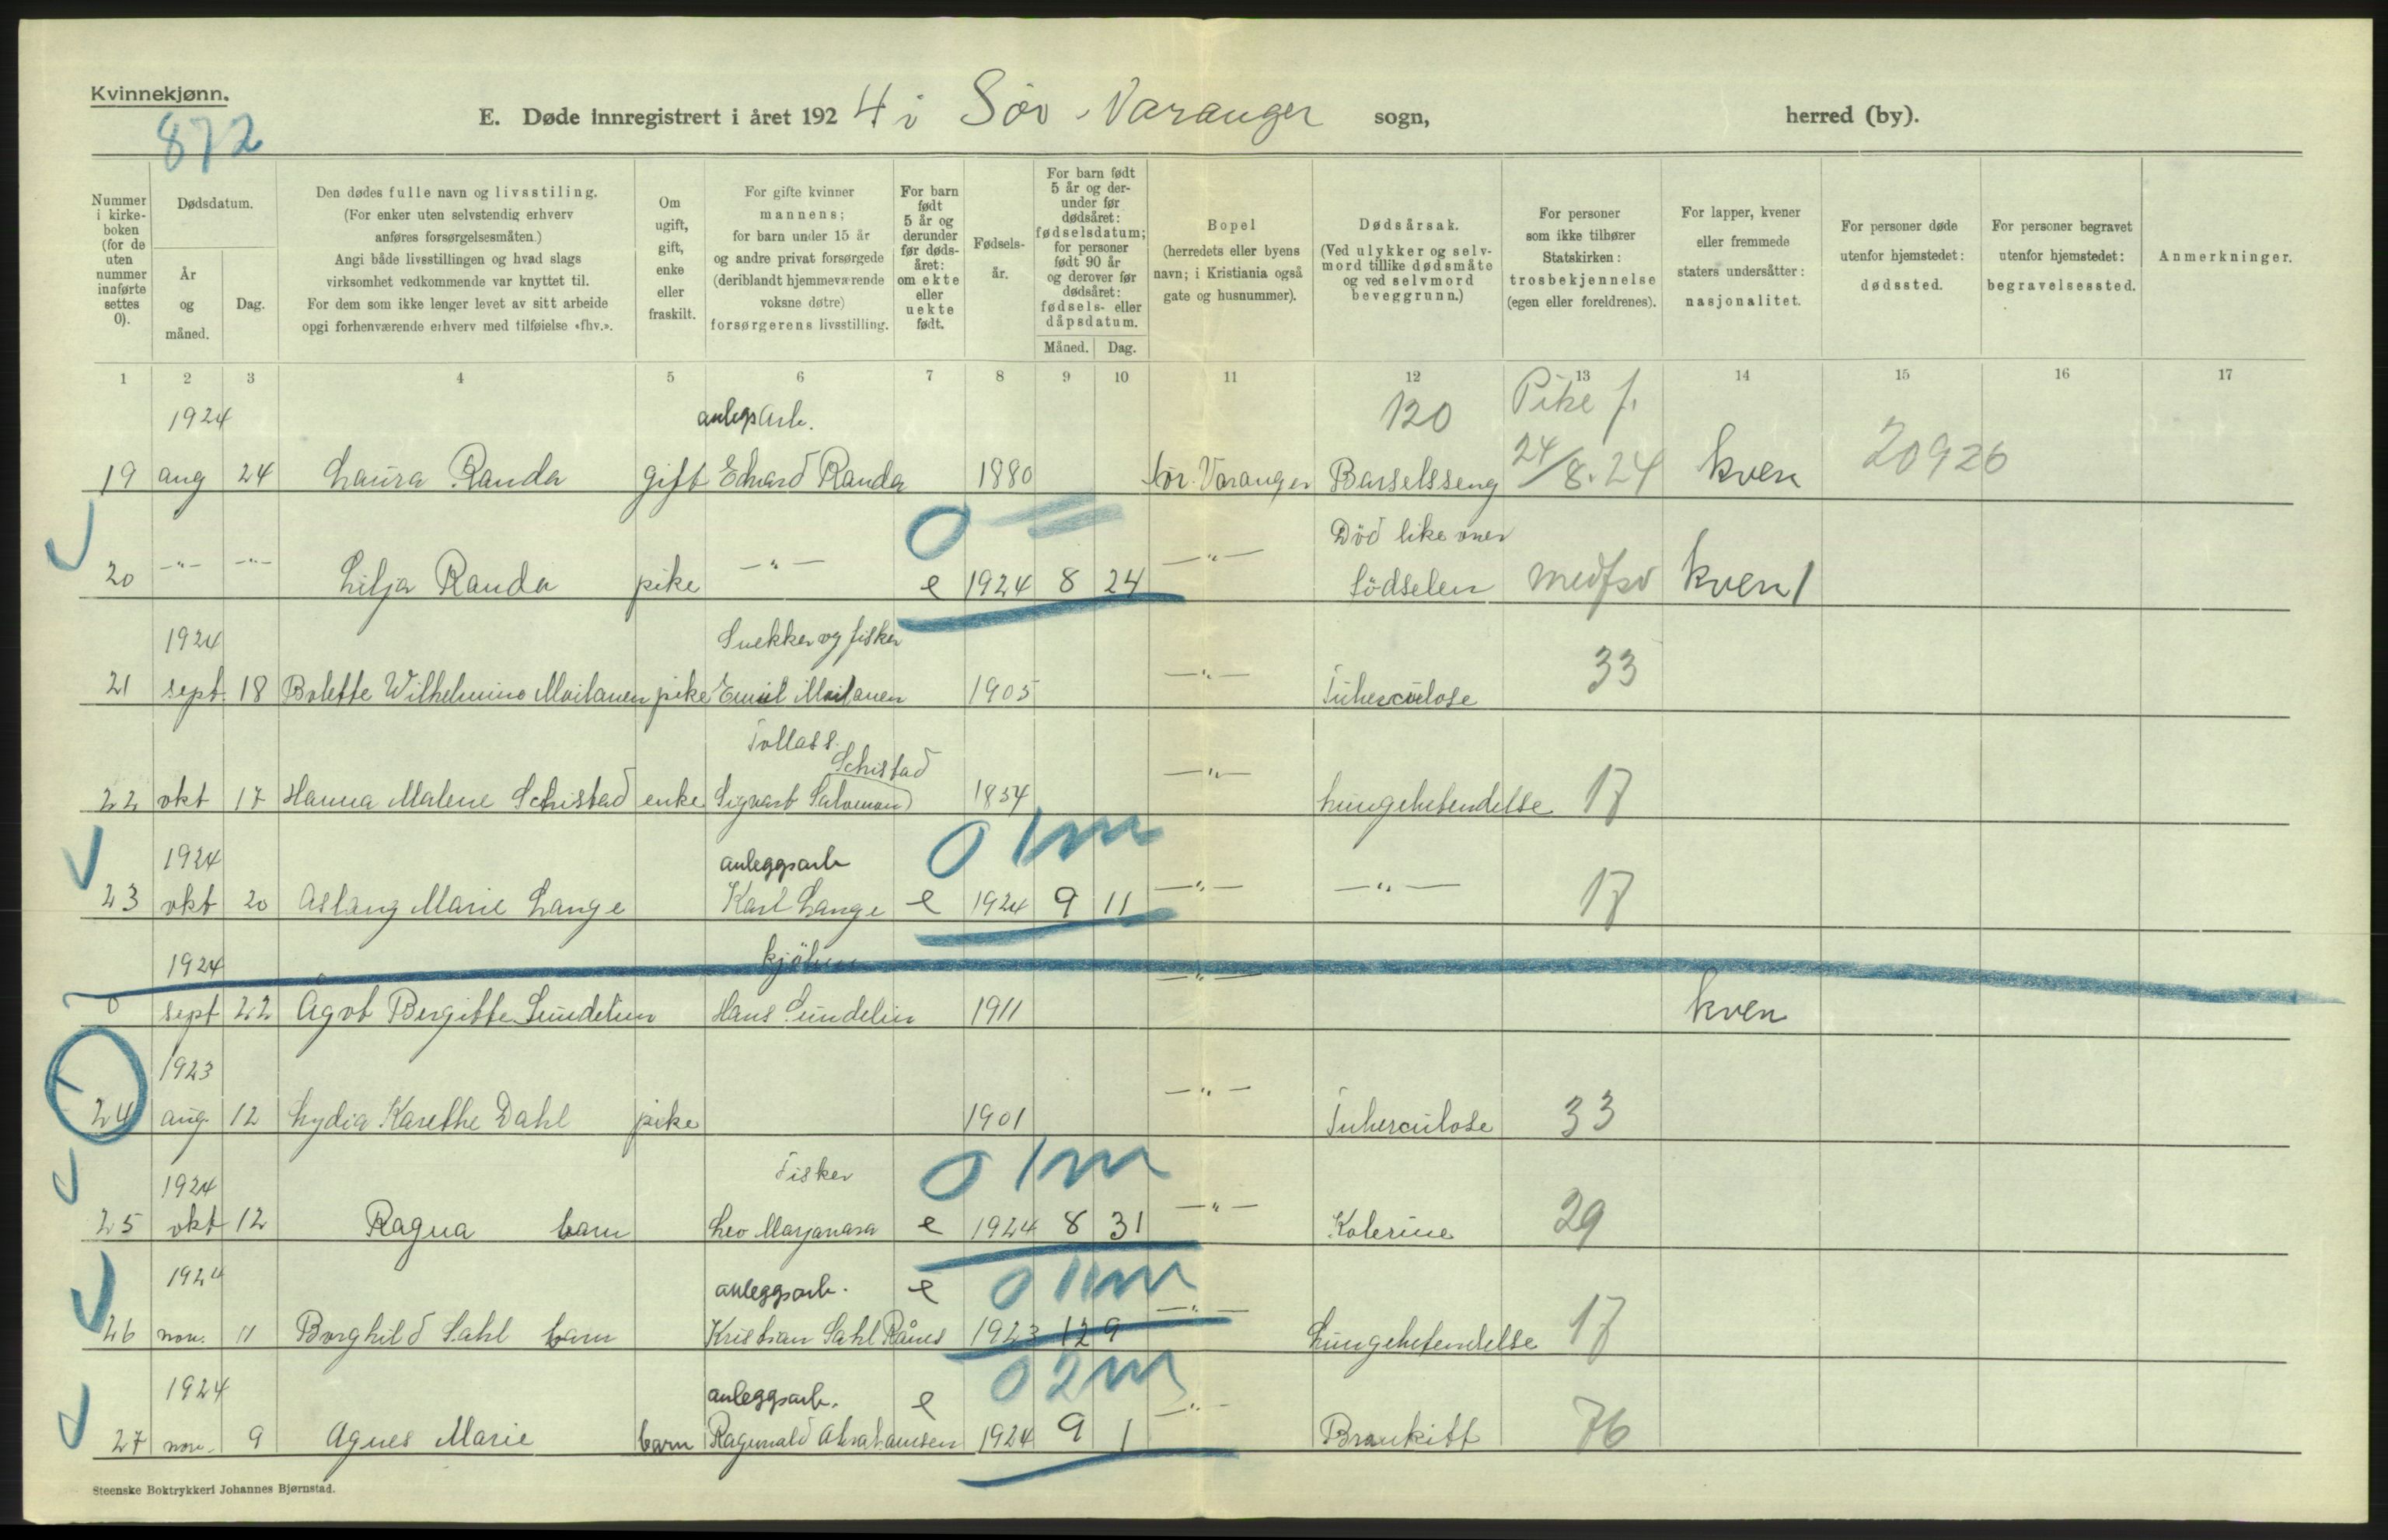 Kvinnekjønn.
872
E. Døde innregistrert i året 1924 i Sør-Varanger sogn, herred (by).
Nummer i kirkeboken (for de uten nummer innførte settes 0).
Dødsdatum.
År og måned.
Dag.
Den dødes fulle navn og livsstiling.
(For enker uten selvstendig erhverv
anføres forsørgelsesmåten.)
Angi både livsstillingen og hvad slags
virksomhet vedkommende var knyttet til.
For dem som ikke lenger levet av sitt arbeide
opgi forhenværende erhverv med tilføielse «fhv.».
Om ugift, gift, enke eller fraskilt.
For gifte kvinner
mannens;
for barn under 15 år
og andre privat forsørgede
(deriblandt hjemmeværende
voksne døtre)
forsørgerens livsstilling.
For barn født 5 år og derunder før dødsåret: om ekte eller uekte født.
Fødselsår.
For barn født 5 år og derunder før dødsåret: fødselsdatum; for personer født 90 år og derover før dødsåret: fødsels- eller dåpsdatum.
Måned. Dag.
Bopel
(herredets eller byens
navn; i Kristiania også
gate og husnummer).
Dødsårsak.
(Ved ulykker og selv-
mord tillike dødsmåte
og ved selvmord
beveggrunn.)
For personer
som ikke tilhører
Statskirken:
trosbekjennelse
(egen eller foreldrenes).
For lapper, kvener
eller fremmede
staters undersåtter:
nasjonalitet.
For personer døde
utenfor hjemstedet:
dødssted.
For personer begravet
utenfor hjemstedet:
begravelsessted.
Anmerkninger.
1 2 3 4 5 6 7 8 9 10 11 12 13 14 15 16 17
1924 anlegsarb. 120 Pike f.
19 aug 24 Laura Randa gift Edvard Randa 1880 Sør. Varanger Barselsseng 24/8.24 kven 20926
0 Död like over
20 -"- -"- Lilja Randa pike -"- e 1924 8 24 -"- födselen medfsv kven 1
1924 Snekker og fisker
21 sept. 18 Bolette Wilhelmine Moilanen pike Emil Moilanen 1905 -"- Tuberculose 33
Tollass. Schistad
22 okt 17 Hanna Malene Schistad enke Sigvart Salomon 1854 -"- Lungebetendelse 17
1924 anleggsarb 0 1m
23 okt 20 Aslaug Marie Lange Karl Lange e 1924 9 11 -"- -"- 17
1924
0 sept 22 Ågot Bergitte Sundelin Hans Sundelin 1911 -"- kven
1923
24 aug. 12 Lydia Karethe Dahl pike 1901 -"- Tuberculose 33
1924 Fisker 0 1m
25 okt 12 Ragna barn Leo Marjavara e 1924 8 31 -"- Kolerine 29
1924 anleggsarb. e 0 11m
26 nov. 11 Borghild Sahl barn Kristian Sahl Rånes 1923 12 9 -"- Lungebetendelse 17
1924 anleggsarb. e 0 2m
27 nov. 9 Agnes Marie barn Ragnvald Abrahamsen 1924 9 1 -"- Bronkitt 76
Steenske Boktrykkeri Johannes Bjørnstad.